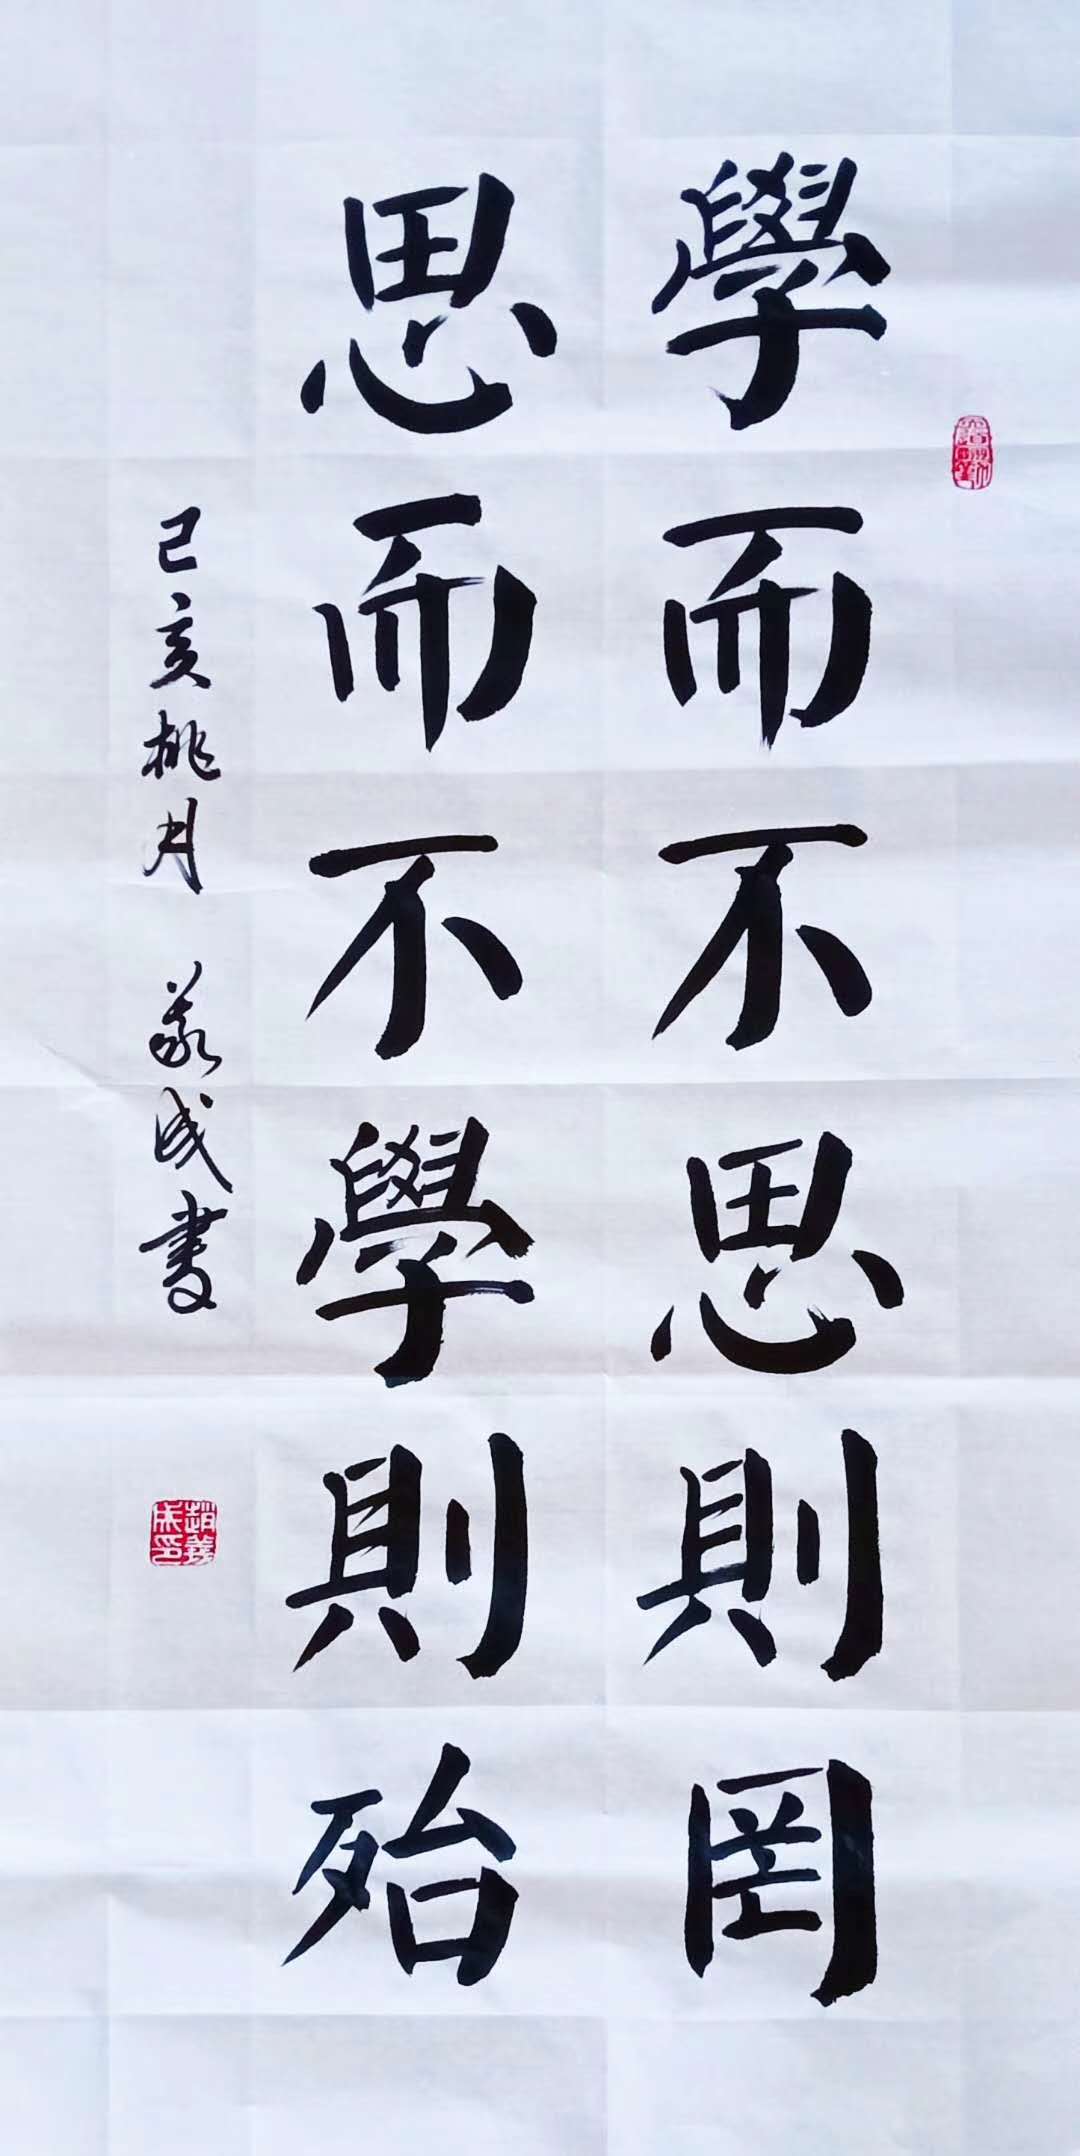 學而不思則罔
思而不學則殆
己亥桃月 義成書
趙義成印